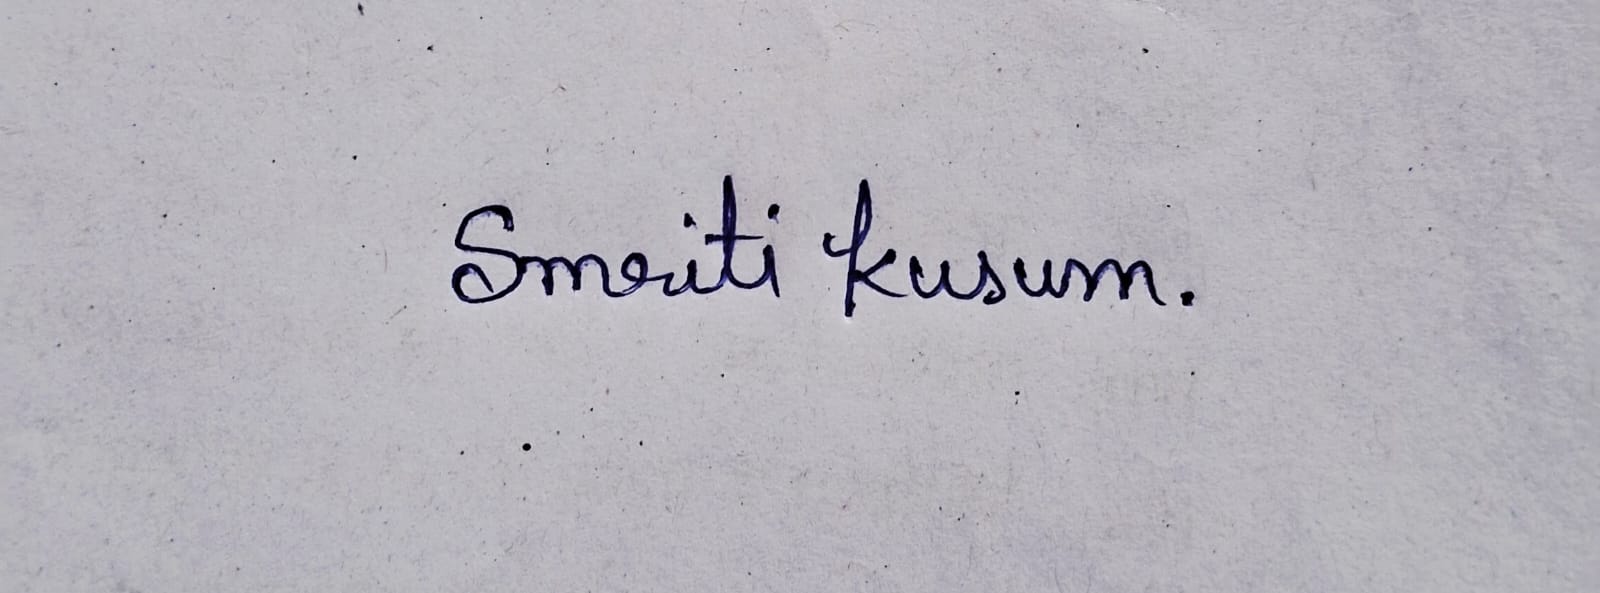 Smriti kusum.